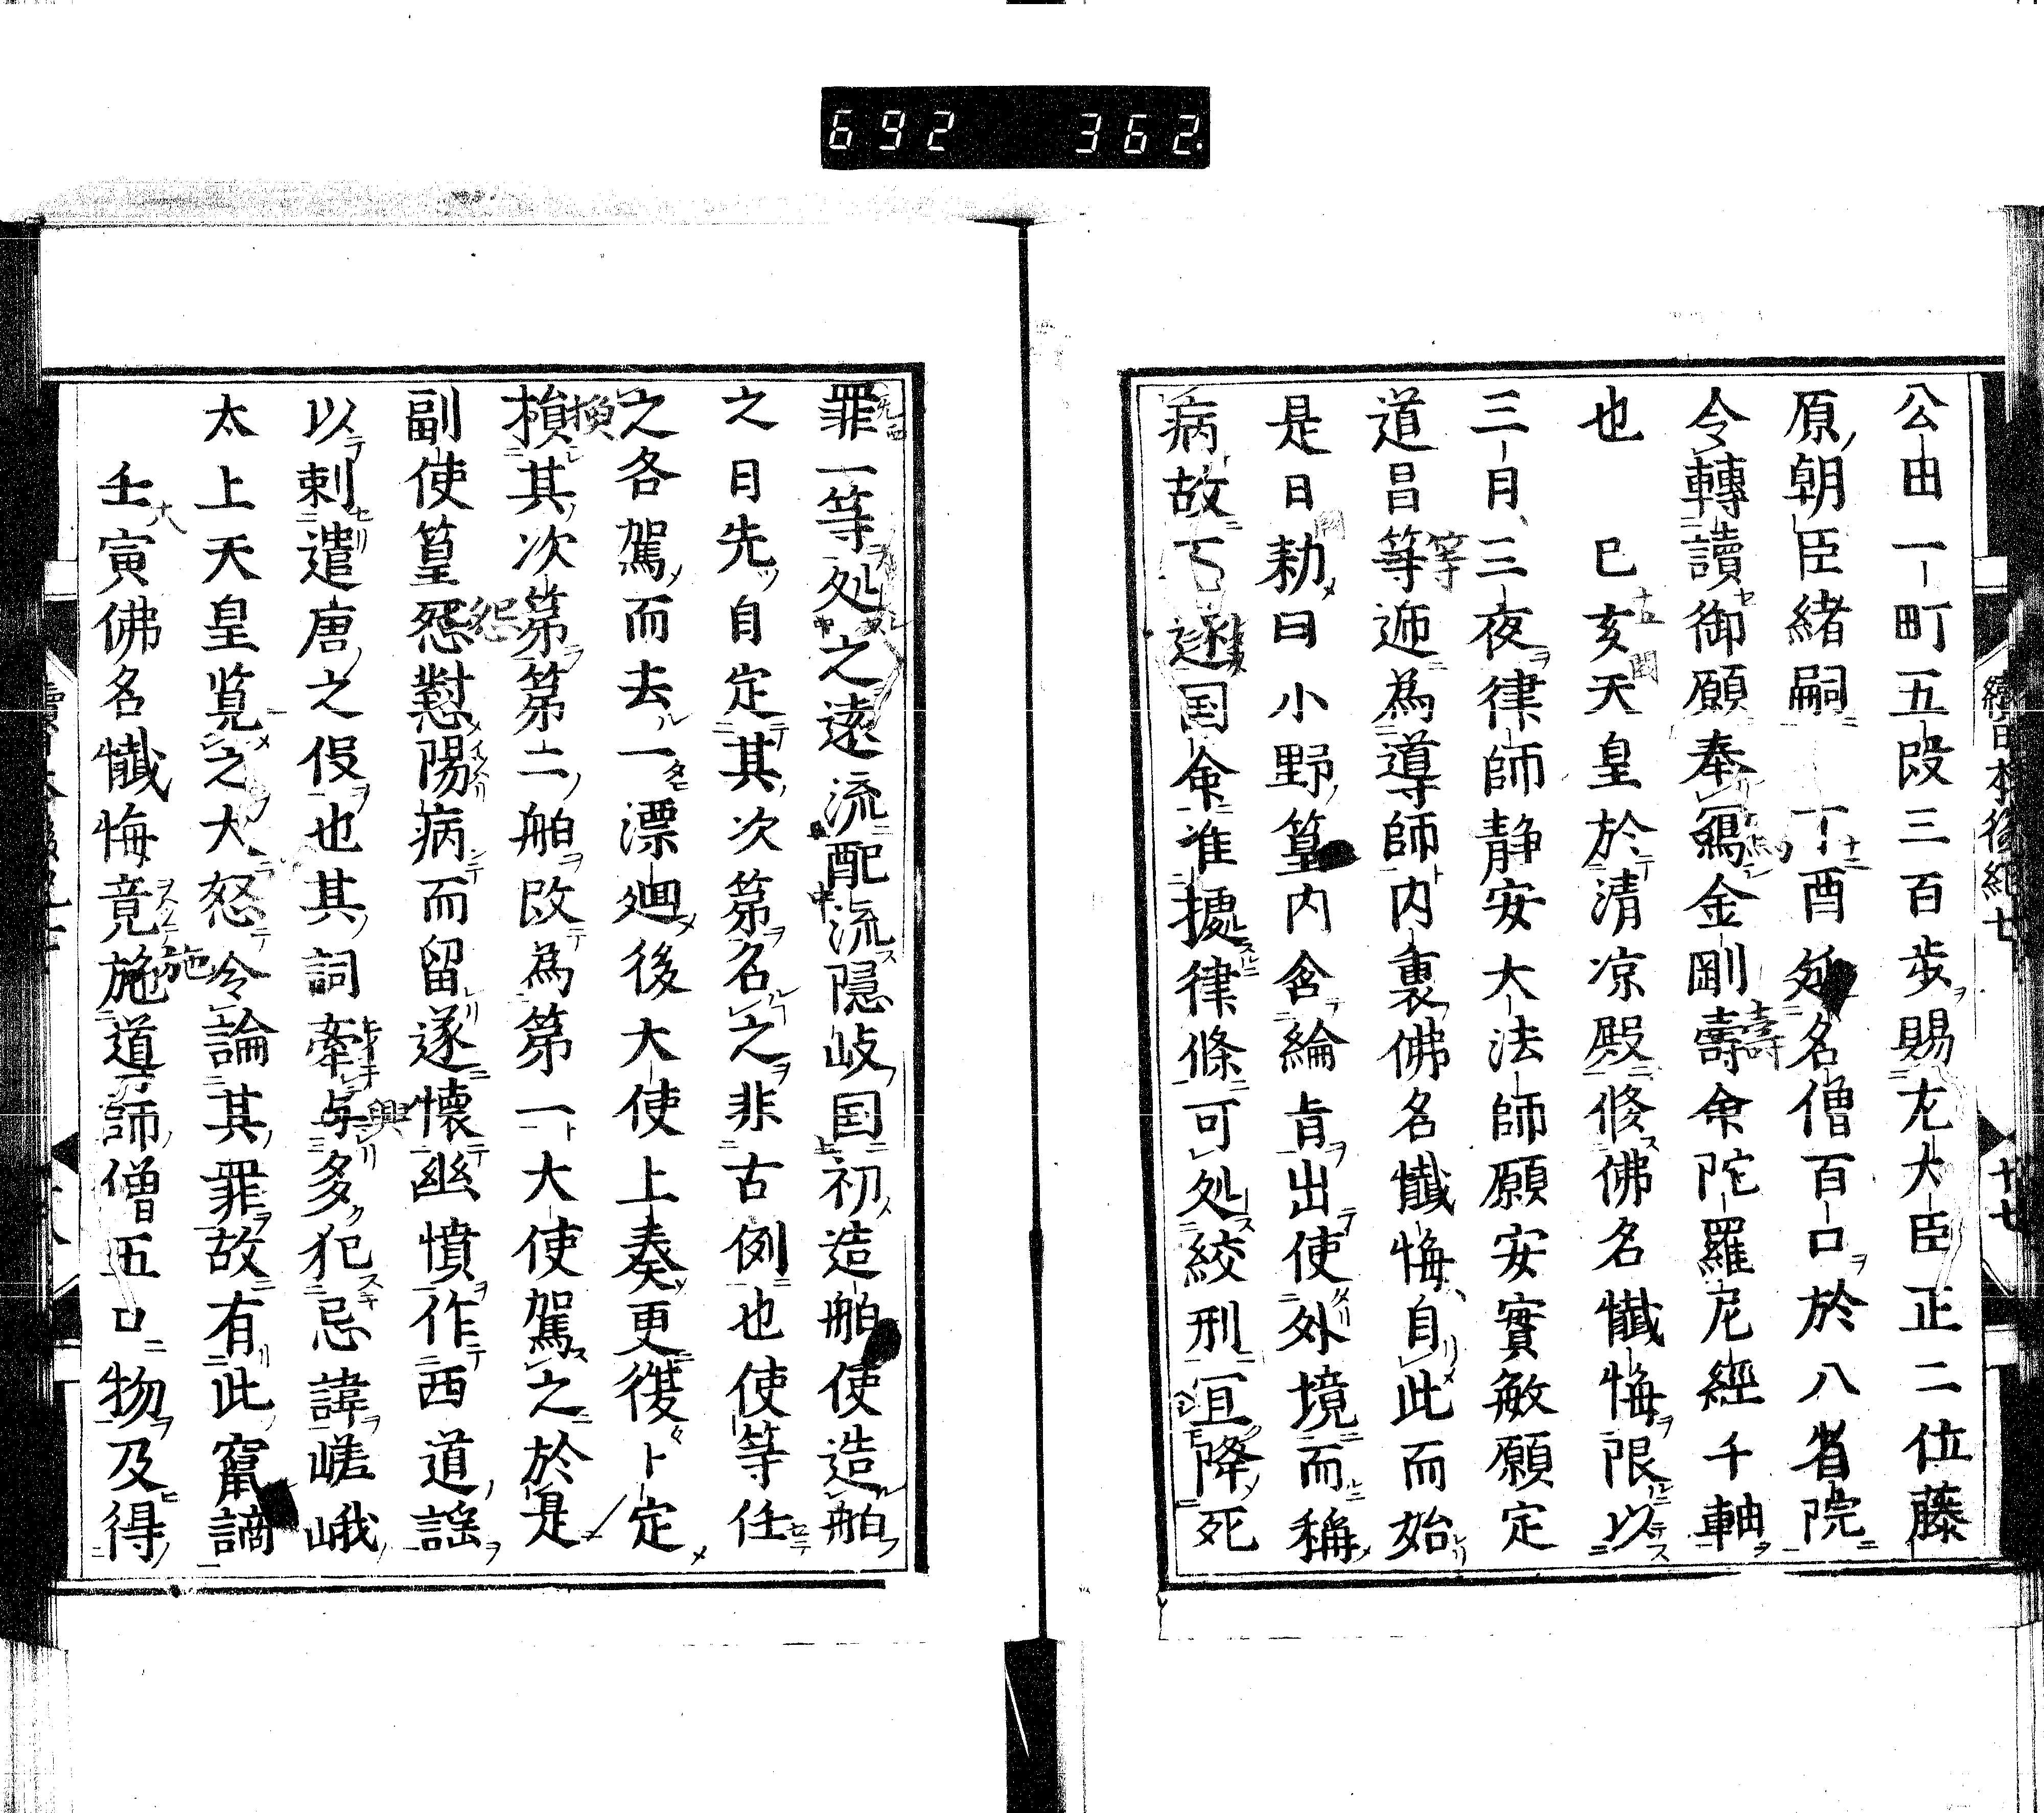 692 362
續日本後紀七 十七
公田一町五段三百歩賜左大臣正二位藤
原朝臣緒嗣 丁酉延名僧百口於八省院
令轉讀御願奉寫金剛壽命陀羅尼經千軸
也 己亥天皇於清凉殿修佛名懺悔限以
三日三夜律師静安大法師願安實敏願定
道昌等遞為導師内裏佛名懺悔自此而始
是日勅曰小野篁内含綸旨出使外境而稱
病故不遂国命准據律條可処絞刑宜降死
罪一等処之遠流配流隠岐国初造舶使造舶
之日先自定其次第名之非古例也使等任
之各駕而去一漂廻後大使上奏更復卜定
換其次第第二舶改為第一大使駕之於是
副使篁怨懟陽病而留遂懐幽憤作西道謡
以刺遣唐之役也其詞牽与多犯忌諱嵯峨
太上天皇覧之大怒令論其罪故有此竄謫
壬寅佛名懺悔竟施道師僧五口物及得